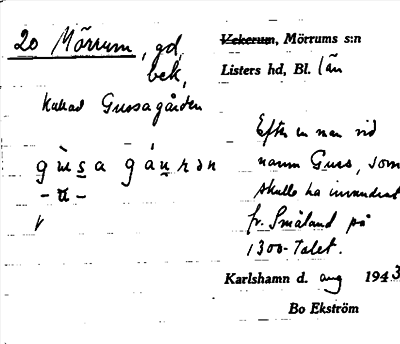 20 Mörrum, gd,
bek,
kallad Gussagården
gùs̲a gáu̲rən
- ŭ -
Vekerum, Mörrums s:n
Listers hd, Bl. län
Efter en man vid
namn Guss, som
skulle ha invandrat
fr. Småland på
1300-talet.
Karlshamn d. aug 1943
Bo Ekström